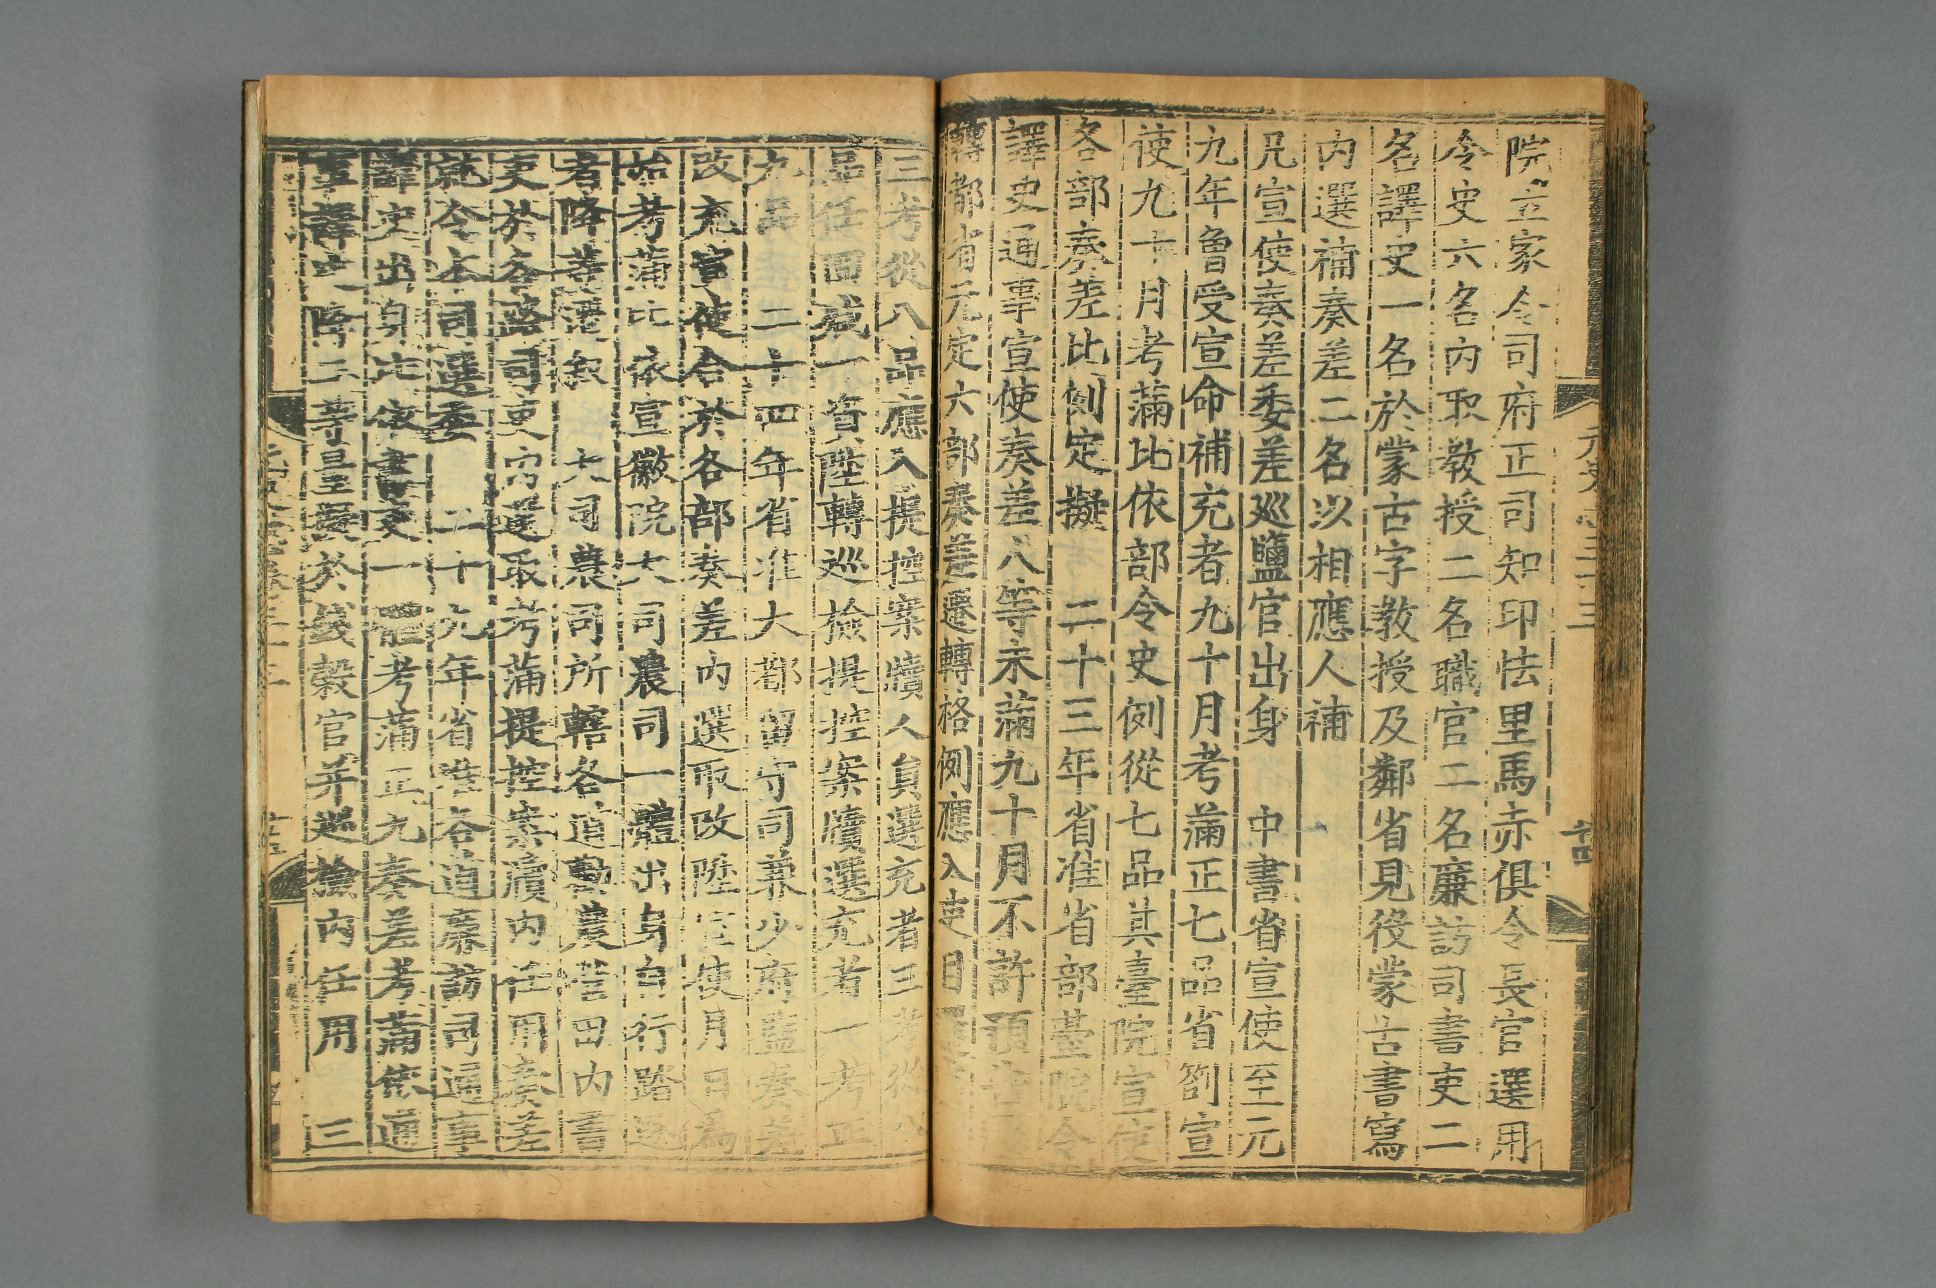 院立家令司府正司知印怯里馬赤俱令長官選用
令史六名內取教授二名職官二名廉訪司書吏二
名譯史一名於蒙古字教授及鄰省見役蒙古書寫
內選補奏差二名以相應人補
凡宣使奏差委差巡鹽官出身 中書省宣使至元
九年曾受宣命補充者九十月考滿正七品省劄宣
使九十月考滿比依部令史例從七品其臺院宣使
各部奏差比例定擬 二十三年省准省部臺院令
譯史通事宣使奏差人等未滿九十月不許預
轉都省元定六部奏差遷轉格例應入吏目
三考從八品應入提控案牘人員選充者三考從八
品任回減一資陞轉巡檢提控案牘選充者一考正
九品 二十四年省准大都留守司兼少府監奏差
改充宣使合於各部奏差內選取改陞宣使月日為
始考滿比依宣徽院大司農司一體出身自行踏逐
者降等遷叙 大司農司所轄各道勸農營田內書
吏於各路司吏內選取考滿提控案牘內任用奏差
就令本司選委 二十九年省准各道廉訪司通事
譯史出身比依書吏一體考滿正九奏差考滿依通
事譯史降二等量擬於錢穀官并巡檢內任用 三
元史志三十三